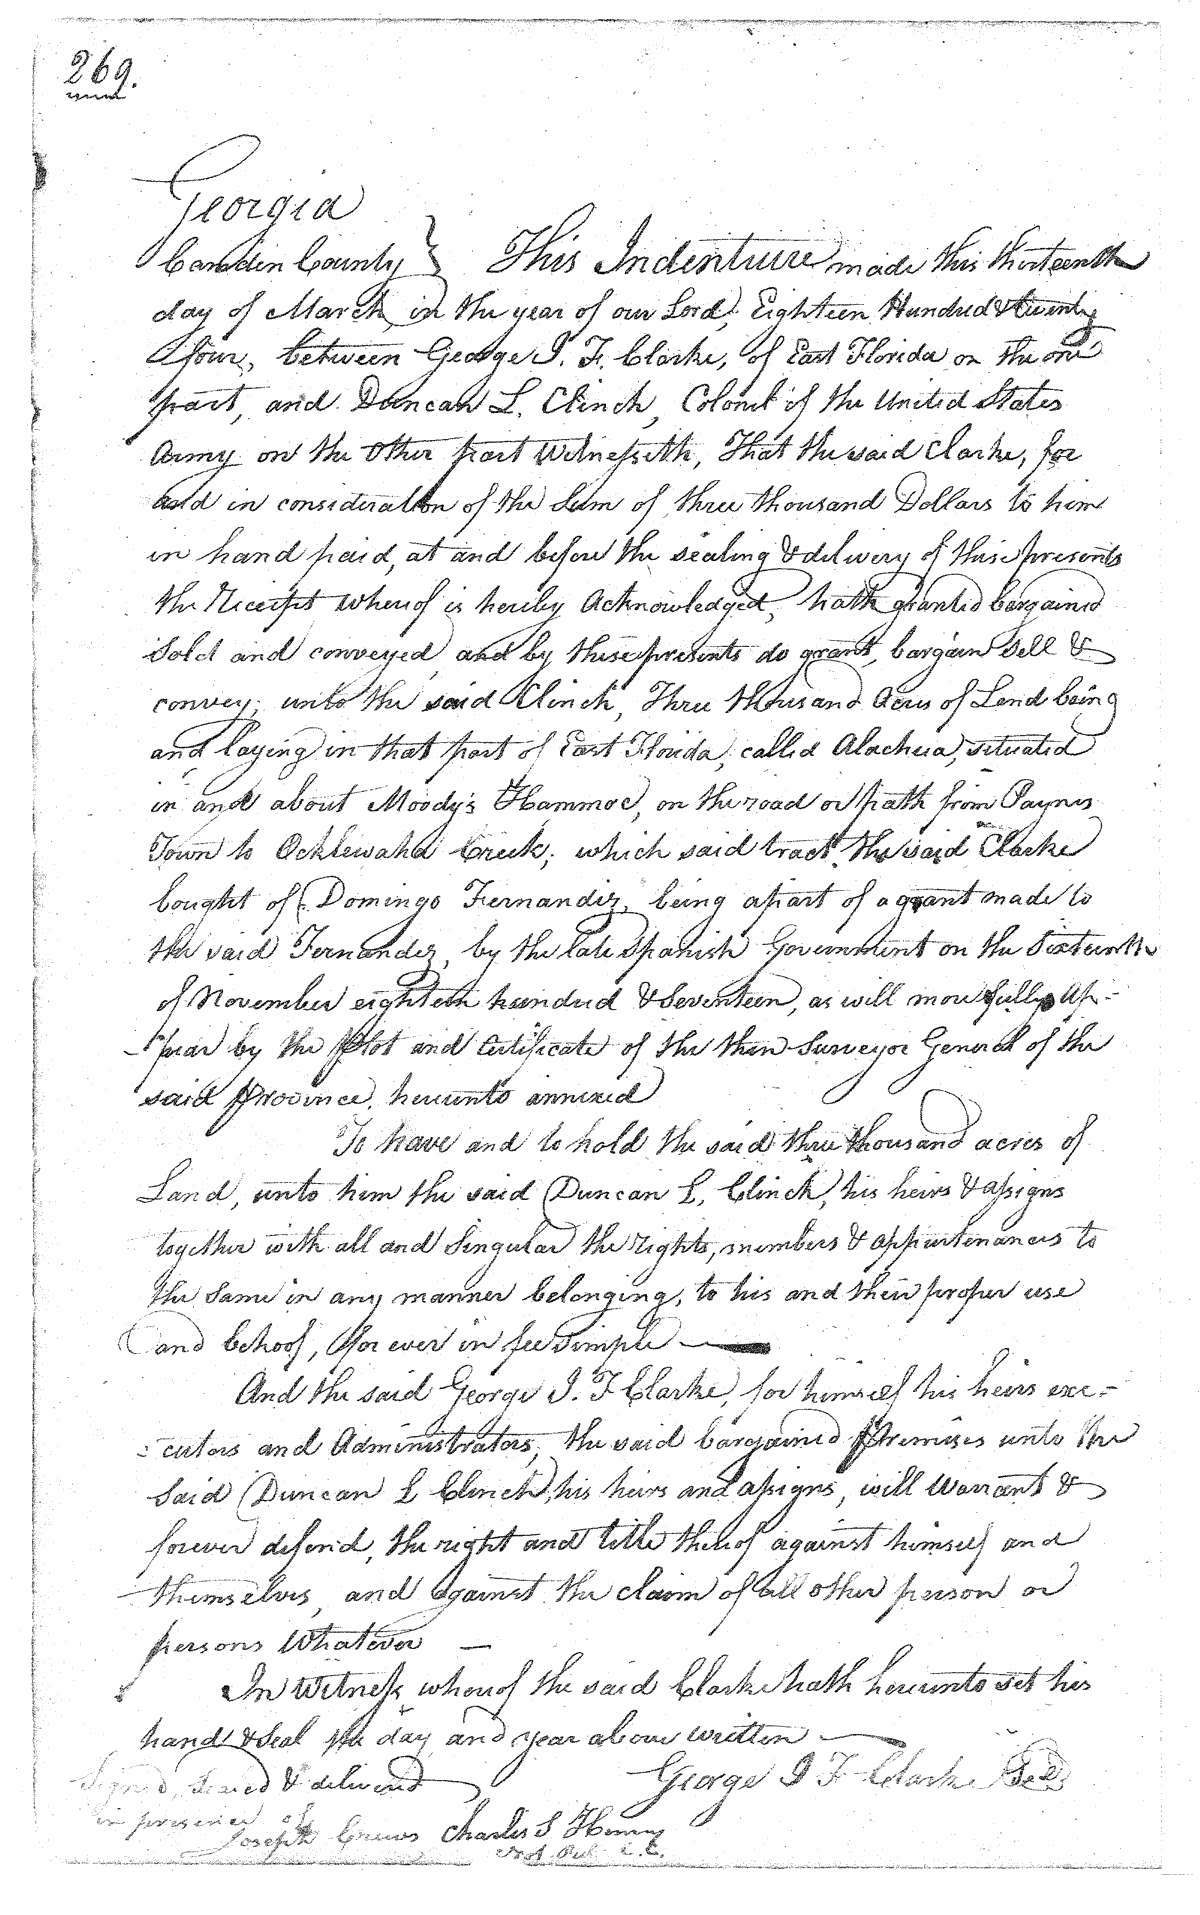 269.
Georgia
Camden County } This Indenture made this thirteenth
day of March in the year of our Lord, Eighteen Hundred & twenty
four, between George I. F. Clarke, of East Florida on the one
part, and Duncan L. Clinch, Colonel of the United States
Army on the other part Witnesseth, That the said Clarke, for
and in consideration of the Sum of three thousand Dollars to him
in hand paid, at and before the sealing & delivery of these presents
the Receipt whereof is hereby Acknowledged, hath granted bargained
Sold and conveyed and by these presents do grant, bargain Sell &
convey, unto the said Clinch, Three thousand Acres of Land being
and laying in that part of East Florida, called Alachua, situated
in and about Moody's Hammoc, on the road or path from Paynes
Town to Ocklewaha Creek; which said tract the said Clarke
bought of Domingo Fernandez, being a part of a grant made to
the said Fernandez, by the late Spanish Government on the Sixteenth
of November eighteen hundred & Seventeen, as will more fully ap-
-pear by the Plot and Certificate of the then Surveyor General of the
said Province, hereunto annexed
To have and to hold the said three thousand acres of
Land, unto him the said Duncan L. Clinch, his heirs & assigns
together with all and Singular the rights, members & appurtenances to
the Same in any manner belonging, to his and their proper use
and behoof, for ever in fee simple
And the said George I. F Clarke, for himself his heirs exe=
=cutors and Administrators, the said bargained Premises unto the
Said Duncan L Clinch, his heirs and assigns, will Warrant &
forever defend, the right and title thereof against himself and
themselves, and against the claim of all other person or
persons Whatever —
In Witness whereof the said Clarke hath hereunto set his
hand & Seal the day and year above written
Signed, Seared & delivered George I F Clarke Seal
in presence of
Joseph Crews Charles S Henry
Not. Pub. C. C.